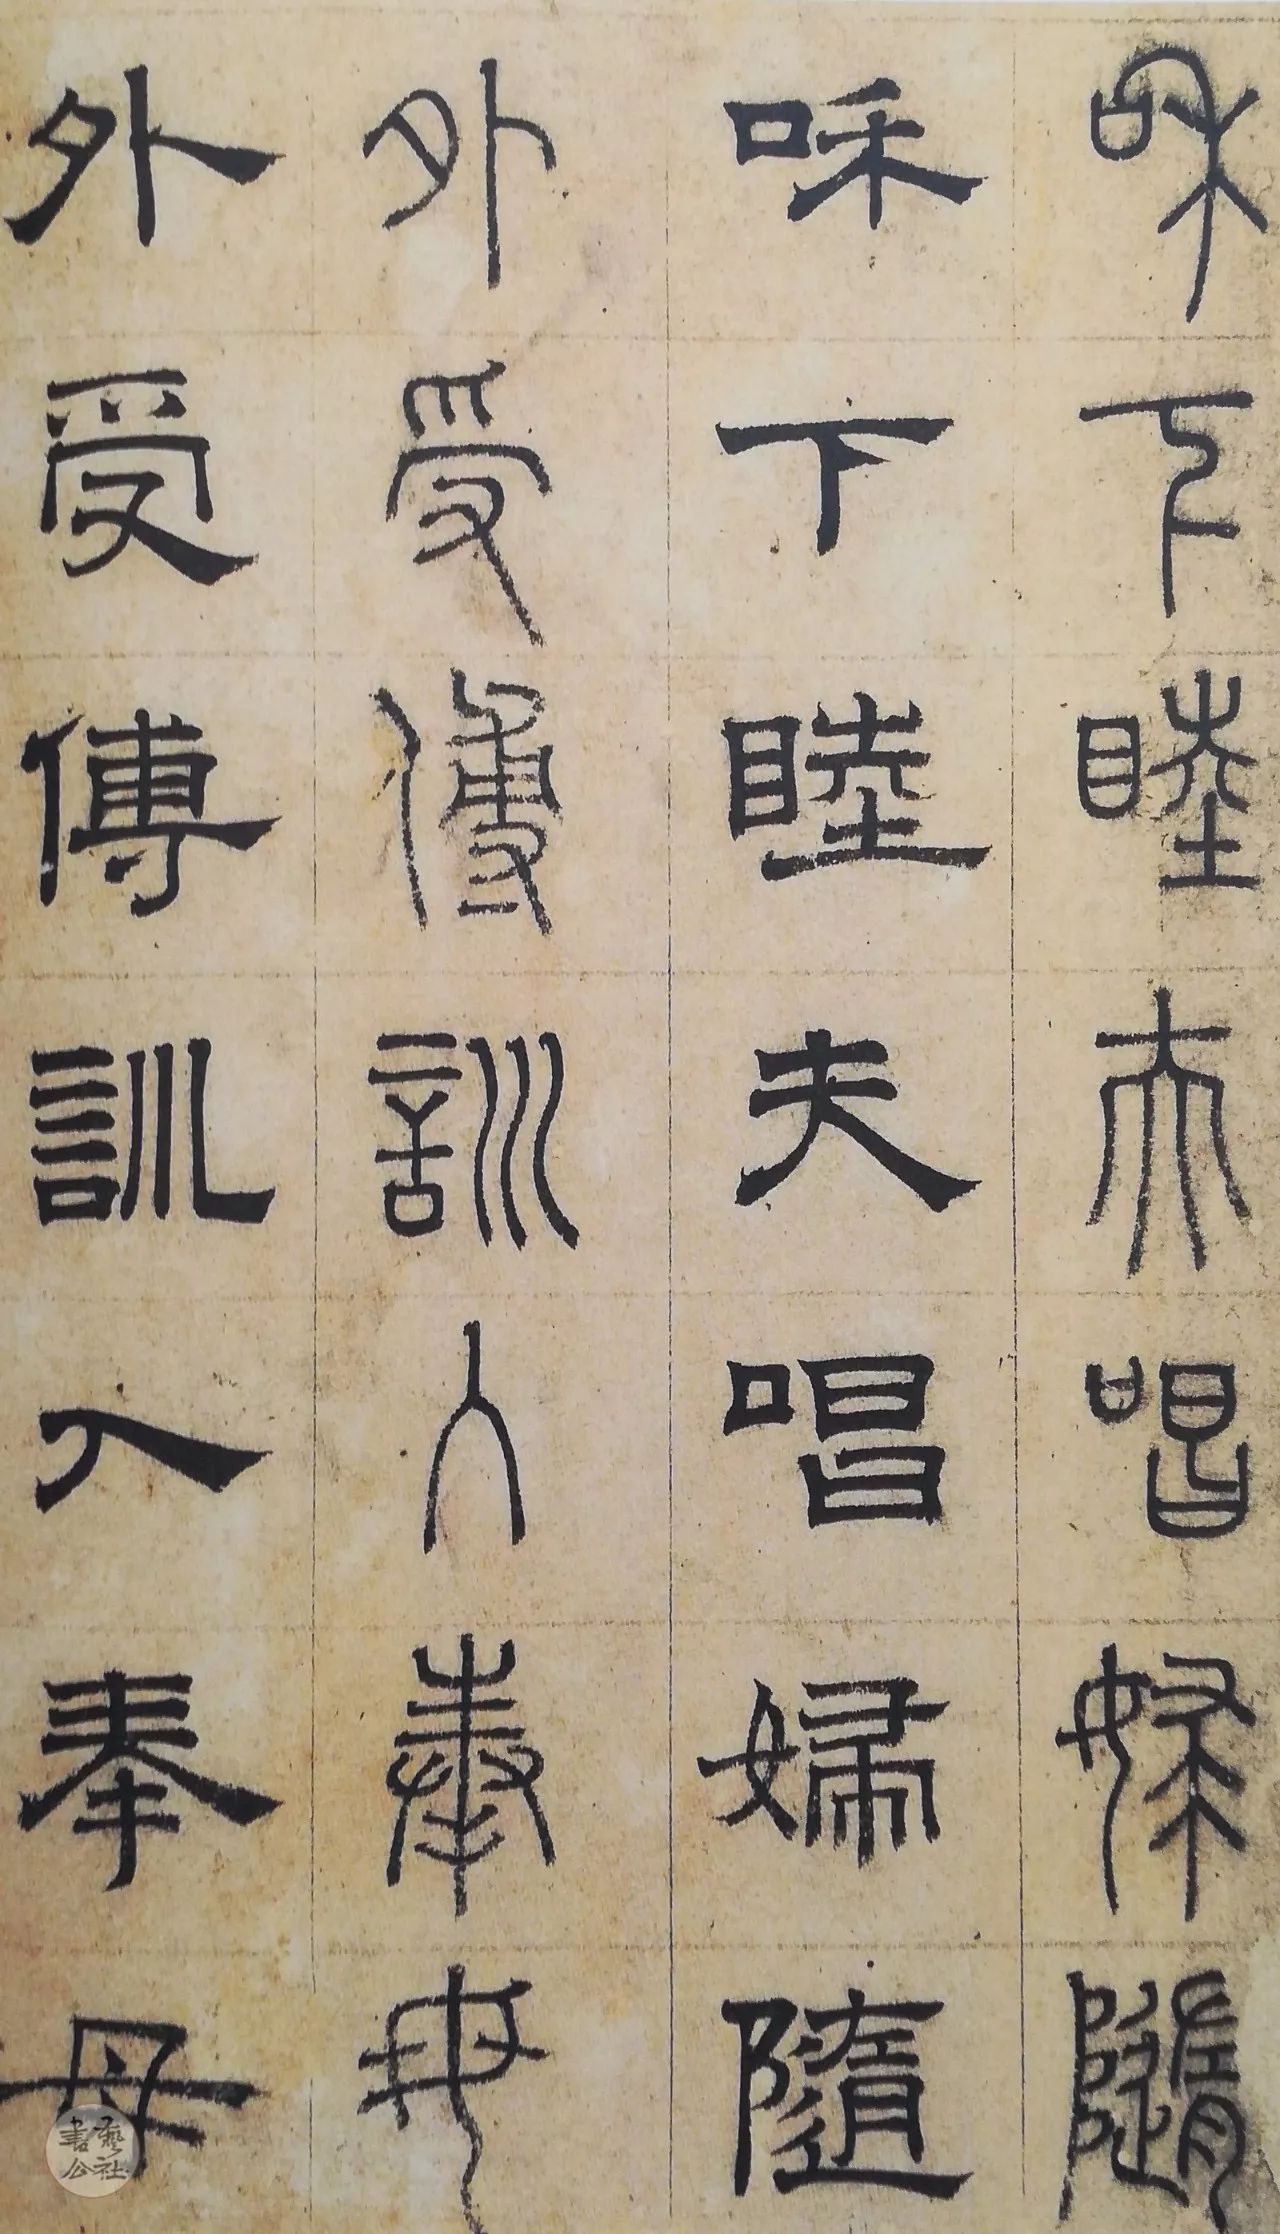 咊下睦夫唱婦隨
咊下睦夫唱婦隨
外受傅訓入奉母
外受傅訓入奉母
書藝公社